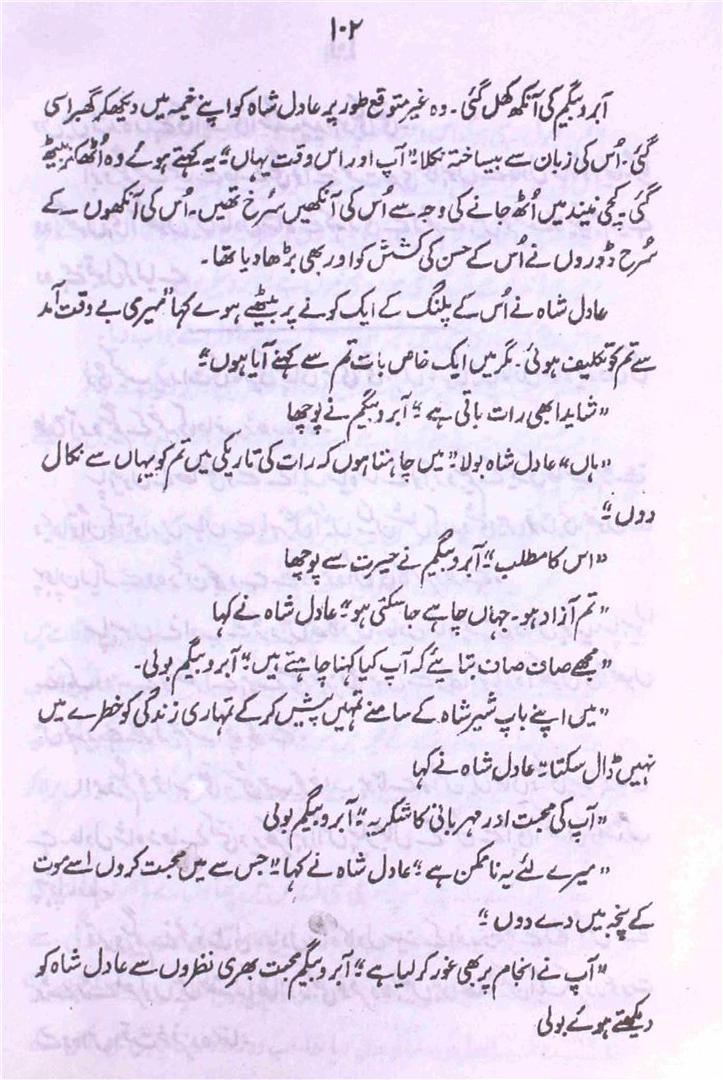 ۱۰۲
آبرو بیگم کی آنکھ کھل گئی۔ وہ غیر متوقع طور پر عادل شاہ کو اپنے خیمہ میں دیکھکر گھبرا سی
گئی۔ اُس کی زبان سے بیساختہ نکلا "آپ اور اس وقت یہاں" یہ کہتے ہوئے وہ اُٹھکر بیٹھ
گئی۔ کچی نیند میں اُٹھ جانے کی وجہ سے اُس کی آنکھیں سُرخ تھیں۔ اُس کی آنکھوں کے
سُرخ ڈوروں نے اُس کے حسن کی کشش کو اور بھی بڑھا دیا تھا۔
عادل شاہ نے اُس کے پلنگ کے ایک کونے پر بیٹھے ہوے کہا "میری بے وقت آمد
سے تم کو تکلیف ہوئی۔ مگر میں ایک خاص بات تم سے کہنے آیا ہوں"
"شاید ابھی رات باقی ہے" آبرو بیگم نے پوچھا
"ہاں" عادل شاہ بولا "میں چاہتا ہوں کہ رات کی تاریکی میں تم کو یہاں سے نکال
دوں"
"اس کا مطلب" آبرو بیگم نے حیرت سے پوچھا
"تم آزاد ہو۔ جہاں چاہے جا سکتی ہو" عادل شاہ نے کہا
"مجھے صاف صاف بتایئے کہ آپ کیا کہنا چاہتے ہیں" آبرو بیگم بولی۔
"میں اپنے باپ شیر شاہ کے سامنے تمہیں پیش کر کے تمہاری زندگی کو خطرے میں
نہیں ڈال سکتا" عادل شاہ نے کہا
"آپ کی محبت اور مہربانی کا شکریہ" آبرو بیگم بولی
"میرے لئے یہ ناممکن ہے" عادل شاہ نے کہا "جس سے میں محبت کروں اسے موت
کے پنجہ میں دے دوں"
"آپ نے انجام پر بھی غور کر لیا ہے" آبرو بیگم محبت بھری نظروں سے عادل شاہ کو
دیکھتے ہوئے بولی